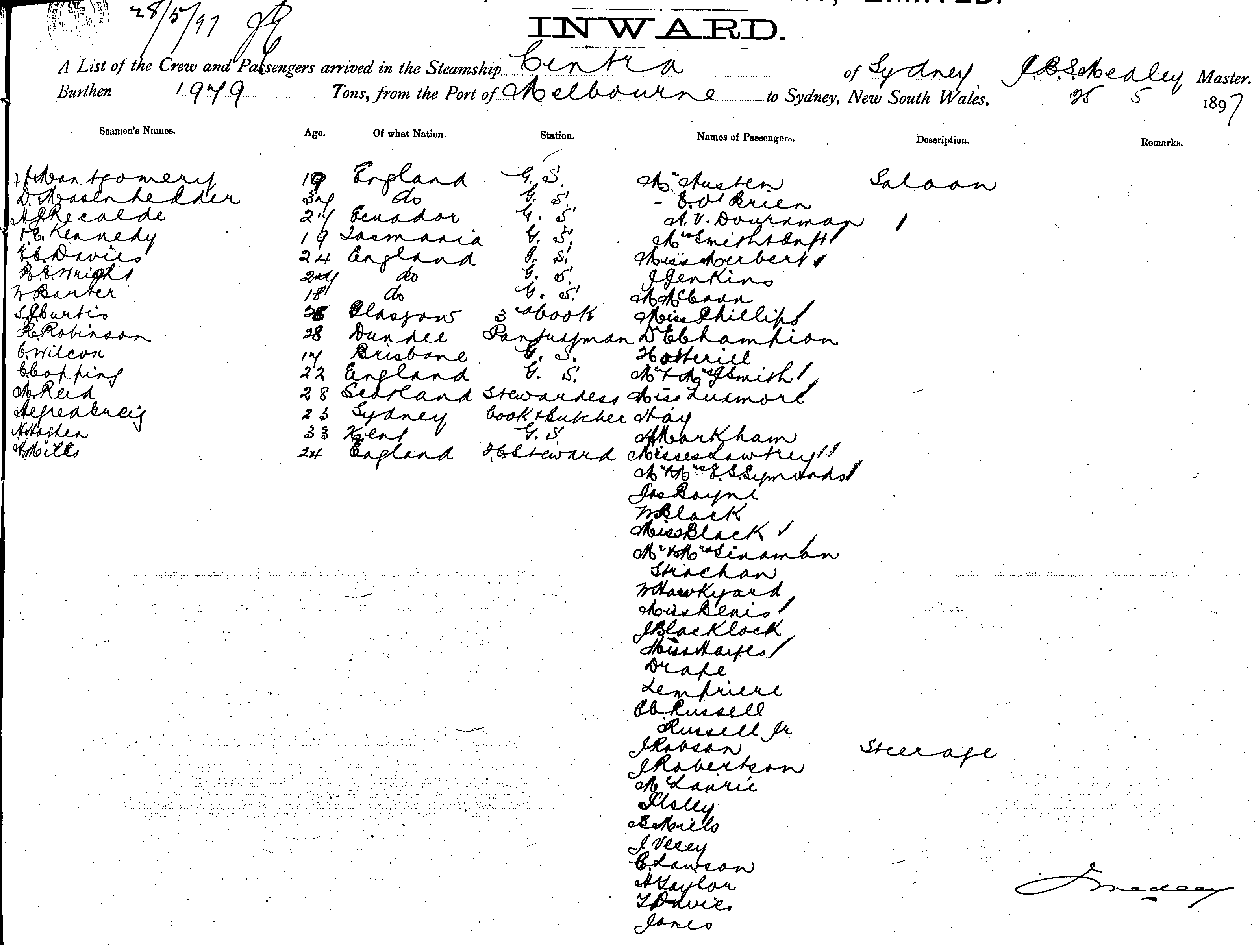 LIMITED.
28/5/97
INWARD.
A List of the Crew and Passengers arrived in the Steamship Cintra of Sydney Master.
Burthen 1979 Tons, from the Port of Melbourne to Sydney, New South Wales, 28 5 1897
Seamen's Names. Age. Of what Nation. Station. Names of Passengers. Description. Remarks.
Montgomery 19 England G. S. Mr Austen Saloon
do G. S. - E. O'Brien
A J Recalde 24 Ecuador G. S. A. V. Doornman
Kennedy 19 Tasmania G. S. Mrs Smith & Inft
Davies 24 England G. S. Miss Herbert
Wright do G. S. J Jenkins
W Baxter 18 do G. S.
Curtis Glasgow 3rd Cook Miss Phillips
R Robinson 28 Dundee Pantryman Dr E Champion
C Wilcon 17 Brisbane G. S. Hotterill
C Copping 22 England G. S. Mr & Mrs J Smith
M Reid 28 Scotland Stewardess Miss Ludmore
Alfred Greig 23 Sydney Cook & Butcher Hay
33 Kent G. S. Markham
A Mills 24 England F. C Steward Misses Lowtrey
Mr & Mrs E. S. Symonds
Jas Bayne
W Black
Miss Black
Mr & Mrs Sinaman
Strachan
W Hawkyard
Miss Denis
J Blacklock
Miss Hayes
Drape
Lempriere
Russell
Russell Jr
J Robson Steerage
J Robertson
M Laurie
Ilsley
E Mills
J Vesey
C Lawson
A Taylor
T Davies
Jones